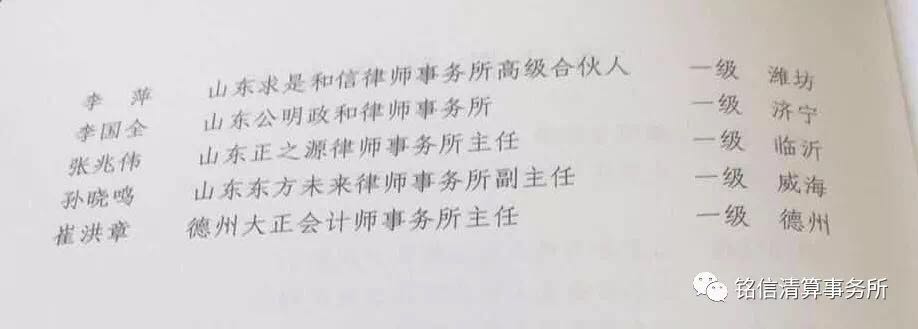 李 萍 山东求是和信律师事务所高级合伙人 一级 潍坊
李国全 山东公明政和律师事务所 一级 济宁
张兆伟 山东正之源律师事务所主任 一级 临沂
孙晓鸣 山东东方未来律师事务所副主任 一级 威海
崔洪章 德州大正会计师事务所主任 一级 德州
铭信清算事务所